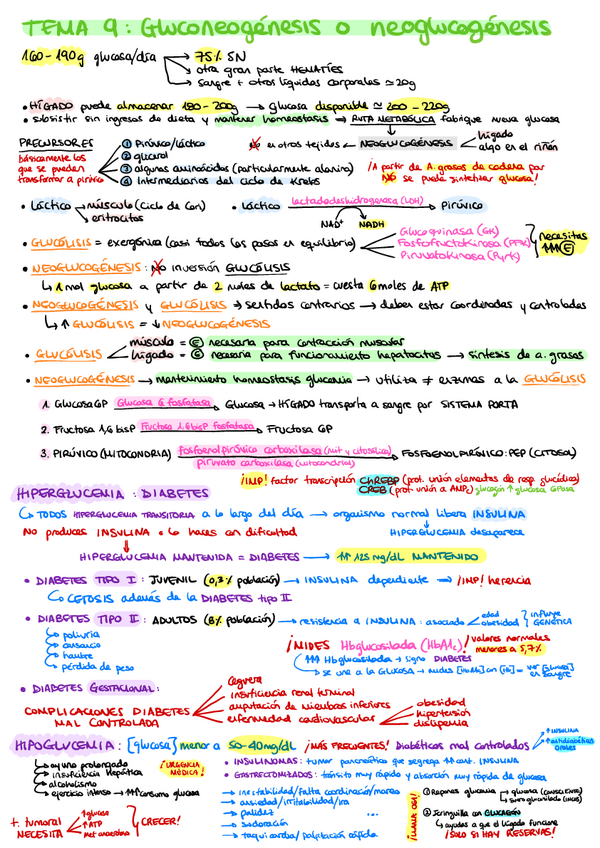 TEMA 9: Gluconeogénesis o neoglucogénesis
160-190g glucosa/día → 75% SN
→ otra gran parte HEMATÍES
→ sangre + otros líquidos corporales ≃ 20g
• HÍGADO puede almacenar 180-200g → glucosa disponible ≃ 200-220g
• subsistir sin ingresos de dieta y mantener homeostasis → RUTA METABÓLICA fabrique nueva glucosa
PRECURSORES
básicamente los que se pueden transformar a pirúvico
① Pirúvico/láctico
② glicerol
③ algunos aminoácidos (particularmente alanina)
④ Intermediarios del ciclo de Krebs
No en otros tejidos ← NEOGLUCOGÉNESIS
hígado
algo en el riñón
¡A partir de A. grasos de cadena par NO se puede sintetizar glucosa!
• Láctico → músculo (ciclo de Cori)
→ eritrocitos
• láctico lactato deshidrogenasa (LDH) → Pirúvico
NAD⁺ NADH
• GLUCÓLISIS = exergónica (casi todos los pasos en equilibrio)
Glucoquinasa (GK)
Fosfofructokinasa (PFK)
Piruvatokinasa (PyrK)
necesitas ↑↑↑ (E)
• NEOGLUCOGÉNESIS: No inversión GLUCÓLISIS
↳ 1 mol glucosa a partir de 2 moles de lactato = cuesta 6 moles de ATP
• NEOGLUCOGÉNESIS y GLUCÓLISIS → sentidos contrarios → deben estar coordinadas y controladas
↳ ↑ GLUCÓLISIS = ↓ NEOGLUCOGÉNESIS
• GLUCÓLISIS
músculo = (E) necesaria para contracción muscular
hígado = (E) necesaria para funcionamiento hepatocitos → síntesis de a. grasos
• NEOGLUCOGÉNESIS → mantenimiento homeostasis glucemia → utiliza ≠ enzimas a la GLUCÓLISIS
1. Glucosa 6P Glucosa 6 fosfatasa → Glucosa → HÍGADO transporta a sangre por SISTEMA PORTA
2. Fructosa 1,6 bisP Fructosa 1,6 bisP fosfatasa → Fructosa 6P
3. PIRÚVICO (MITOCONDRIA) fosfoenolpirúvico carboxilasa (mit y citosólica) → FOSFOENOLPIRÚVICO: PEP (CITOSOL)
piruvato carboxilasa (mitocondrias)
¡IMP! factor transcripción ChREBP (prot. unión elementos de resp. glucídica)
CREB (prot unión a AMPc) glucagón ↑ glucosa 6Pasa
HIPERGLUCEMIA: DIABETES
↳ TODOS HIPERGLUCEMIA TRANSITORIA a lo largo del día → organismo normal libera INSULINA
HIPERGLUCEMIA desaparece
No produces INSULINA o lo haces con dificultad
HIPERGLUCEMIA MANTENIDA = DIABETES → ↑↑ 125 mg/dL MANTENIDO
• DIABETES TIPO I: JUVENIL (0,3% población) → INSULINA dependiente → ¡IMP! herencia
↳ CETOSIS además de la DIABETES tipo II
• DIABETES TIPO II: ADULTOS (8% población) → resistencia a INSULINA: asociado
edad
obesidad
influye GENÉTICA
↳ poliuria
↳ cansancio
↳ hambre
↳ pérdida de peso
¡MIDES Hb glucosilada (HbA1c)!
valores normales menores a 5,7%
↑↑↑ Hb glucosilada → signo DIABETES
↳ se une a la Glucosa → mides [HbA1c] en [Hb] = ver [glucosa] en sangre
• DIABETES GESTACIONAL:
COMPLICACIONES DIABETES MAL CONTROLADA
ceguera
insuficiencia renal terminal
amputación de miembros inferiores
enfermedad cardiovascular
obesidad
hipertensión
dislipemia
HIPOGLUCEMIA: [glucosa] menor a 50-40mg/dL ¡MÁS FRECUENTES! Diabéticos mal controlados
↑ INSULINA
↑ antidiabéticos orales
↳ ayuno prolongado
↳ insuficiencia hepática
↳ alcoholismo
↳ ejercicio intenso → ↑↑↑ consumo glucosa
¡URGENCIA MÉDICA!
• INSULINOMAS: tumor pancreático que segrega ↑↑ cant. INSULINA
• GASTRECTOMIZADOS: tránsito muy rápido y absorción muy rápida de glucosa
→ inestabilidad/falta coordinación/mareo
→ ansiedad/irritabilidad/ira
→ palidez ...
→ sudoración
→ taquicardia/palpitación rápida
① Repones glucemia
glucosa (CONSCIENTE)
suero glucosilado (INCONS)
② Jeringuilla con GLUCAGÓN
↳ ayudas a que el hígado funcione
¡SOLO SI HAY RESERVAS!
t. tumoral NECESITA
↑ glucosa
↑ ATP
Met anaerobio
CRECER!